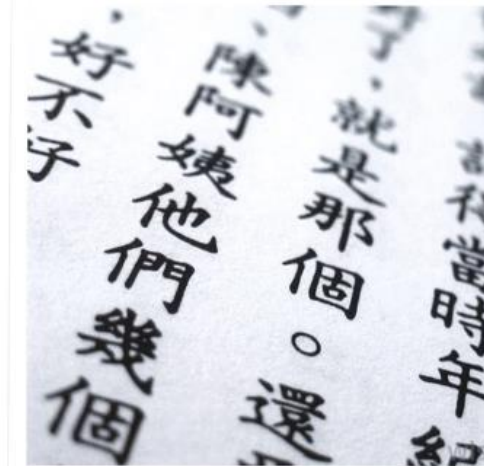 得當時年紀
了，就是那個。還
、陳阿姨他們幾個
，好不好